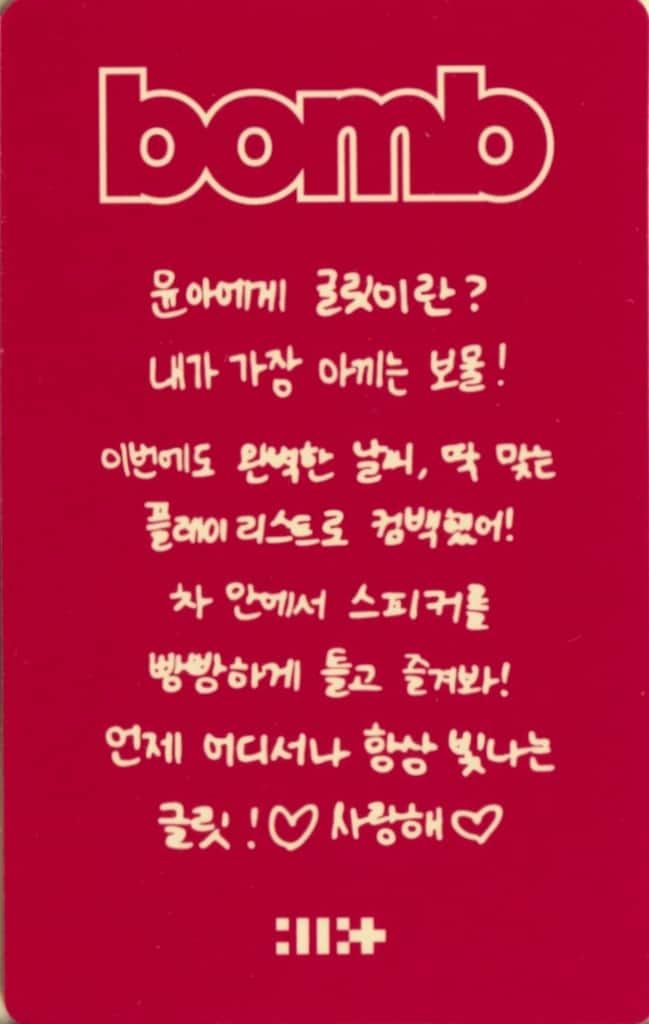 bomb
윤아에게 글릿이란?
내가 가장 아끼는 보물!
이번에도 완벽한 날씨, 딱 맞는
플레이리스트로 컴백했어!
차 안에서 스피커를
빵빵하게 틀고 즐겨봐!
언제 어디서나 항상 빛나는
글릿!♡사랑해♡